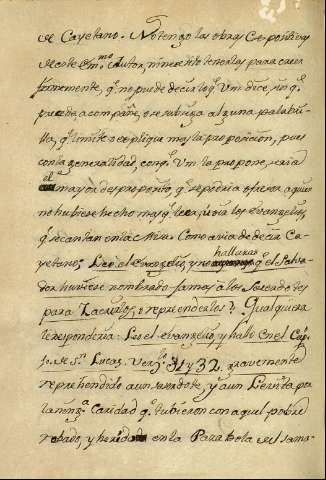 de Cayetano. No tengo las obras Expositivas
de este Em.mo Autor, ni necesito tenerlas para creer
firmemente, q.e no puede decir lo q.e Vm dice, sin q.e
preceda, acompañe, o se subsiga alguna palabri-
lla, q.e limite o explique mas la proposicion, pues
con la generalidad, con q.e Vm la propone, seria
el mayor desproposito, q.e se podria ofrecer a quien
no hubiese hecho mas q.e leer, u oir los Evangelios,
q.e se cantan en la Misa. Como avia de decir Ca-
yetano; Leo el Evangelio, y no hallaras q.e el Salva-
dor huviese nombrado jamas a los Sacerdotes
para reprenderlos? Qualquiera
le responderia: Leo el evangelio, y hallo en el Cap.
de S.n Lucas. Vers. 31 y 32. gravemente
reprehendido a un sacerdote, y a un Levita por
la caridad q.e tubieron con aquel pobre
robado, y herido en la Parabola del Sama-